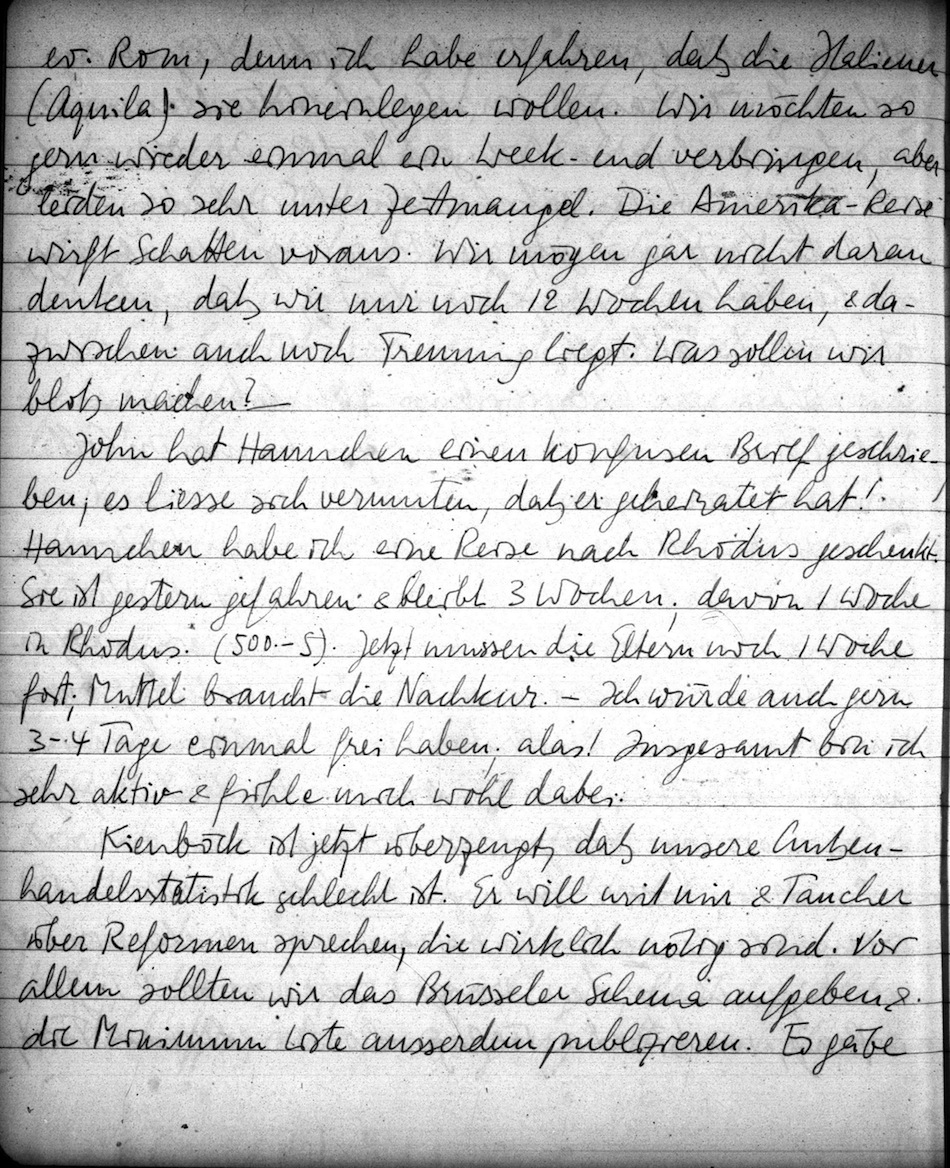 ev. Rom, denn ich habe erfahren, daß die Italiener
(Aquila) sie hineinlegen wollen. Wir möchten so
gern wieder einmal ein Week-end verbringen, aber
leiden so sehr unter Zeitmangel. Die Amerika-Reise
wirft Schatten voraus. Wir mögen gar nicht daran
denken, daß wir nur noch 12 Wochen haben, & da-
zwischen auch noch Trennung liegt. Was sollen wir
bloß machen? —
John hat Hannchen einen konfusen Brief geschrie-
ben, es liesse sich vermuten, daß er geheiratet hat!
Hannchen habe ich eine Reise nach Rhodus geschenkt.
Sie ist gestern gefahren & bleibt 3 Wochen, davon 1 Woche
in Rhodus. (500.- S). Jetzt müssen die Eltern noch 1 Woche
fort; Muttel braucht die Nachkur. – Ich würde auch gern
3-4 Tage einmal frei haben, alas! Insgesamt bin ich
sehr aktiv & fühle mich wohl dabei.
Kienböck ist jetzt überzeugt, daß unsere Außen-
handelsstatistik schlecht ist. Er will mit mir & Taucher
über Reformen sprechen, die wirklich nötig sind. Vor
allem sollten wir das Brüsseler Schema aufgeben &
die Minimum Liste ausserdem publizieren. Es gäbe